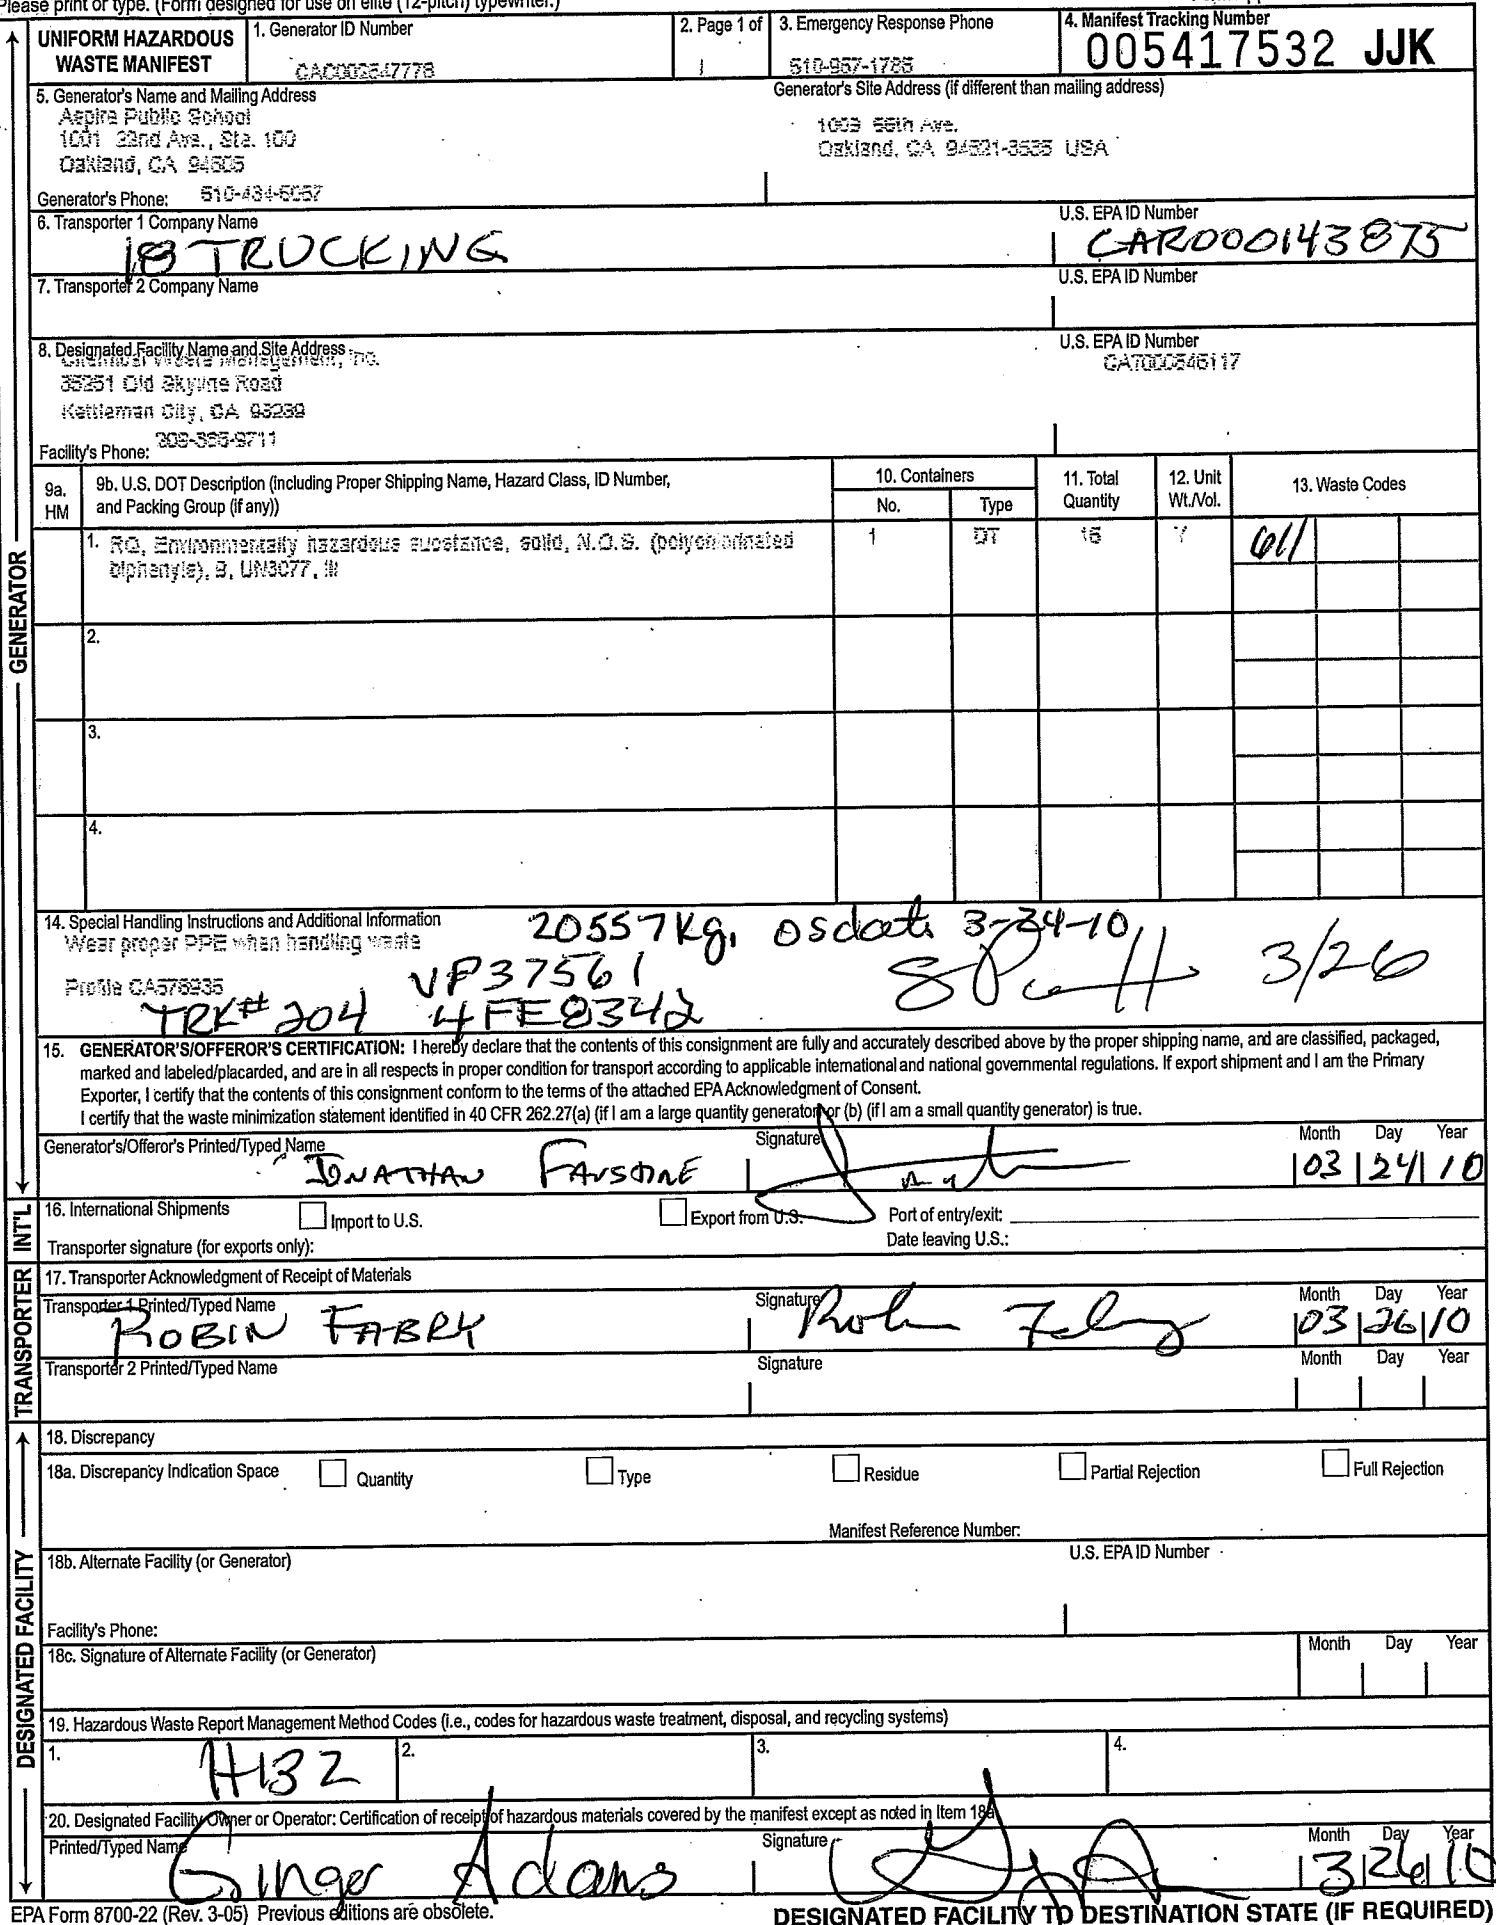 Please print or type. (Form designed for use on elite (12-pitch) typewriter.)
UNIFORM HAZARDOUS WASTE MANIFEST
1. Generator ID Number
CAC002647778
2. Page 1 of
1
3. Emergency Response Phone
510-967-1786
4. Manifest Tracking Number
005417532 JJK
5. Generator's Name and Mailing Address
Aspire Public School
1001 22nd Ave., Ste. 100
Oakland, CA 94606
Generator's Phone: 510-434-5057
Generator's Site Address (if different than mailing address)
1009 66th Ave.
Oakland, CA 94621-3535 USA
6. Transporter 1 Company Name
18 TRUCKING
U.S. EPA ID Number
CAR000143875
7. Transporter 2 Company Name
U.S. EPA ID Number
8. Designated Facility Name and Site Address
Chemical Waste Management, Inc.
35251 Old Skyline Road
Kettleman City, CA 93239
Facility's Phone: 309-386-9711
U.S. EPA ID Number
CAT000646117
9a. HM
9b. U.S. DOT Description (including Proper Shipping Name, Hazard Class, ID Number, and Packing Group (if any))
10. Containers
No.
Type
11. Total Quantity
12. Unit Wt./Vol.
13. Waste Codes
1. RQ, Environmentally hazardous substance, solid, N.O.S. (polychlorinated
biphenyls), 9, UN3077, III
1
DT
16
Y
611
2.
3.
4.
14. Special Handling Instructions and Additional Information
Wear proper PPE when handling waste
20557 Kg, osdate 3-24-10
Profile CA576935
VP37561
3/26
TRK# 204 4FE8342
15. GENERATOR'S/OFFEROR'S CERTIFICATION: I hereby declare that the contents of this consignment are fully and accurately described above by the proper shipping name, and are classified, packaged,
marked and labeled/placarded, and are in all respects in proper condition for transport according to applicable international and national governmental regulations. If export shipment and I am the Primary
Exporter, I certify that the contents of this consignment conform to the terms of the attached EPA Acknowledgment of Consent.
I certify that the waste minimization statement identified in 40 CFR 262.27(a) (if I am a large quantity generator) or (b) (if I am a small quantity generator) is true.
Generator's/Offeror's Printed/Typed Name
JONATHAN FAUSTINE
Signature
Month Day Year
03 24 10
16. International Shipments
Import to U.S.
Export from U.S.
Port of entry/exit:
Transporter signature (for exports only):
Date leaving U.S.:
17. Transporter Acknowledgment of Receipt of Materials
Transporter 1 Printed/Typed Name
ROBIN FABRY
Signature
Robin Fabry
Month Day Year
03 26 10
Transporter 2 Printed/Typed Name
Signature
Month Day Year
18. Discrepancy
18a. Discrepancy Indication Space
Quantity
Type
Residue
Partial Rejection
Full Rejection
Manifest Reference Number:
18b. Alternate Facility (or Generator)
U.S. EPA ID Number
Facility's Phone:
18c. Signature of Alternate Facility (or Generator)
Month Day Year
19. Hazardous Waste Report Management Method Codes (i.e., codes for hazardous waste treatment, disposal, and recycling systems)
1. H132
2.
3.
4.
20. Designated Facility Owner or Operator: Certification of receipt of hazardous materials covered by the manifest except as noted in Item 18a
Printed/Typed Name
Ginger Adams
Signature
Month Day Year
3 26 10
EPA Form 8700-22 (Rev. 3-05) Previous editions are obsolete.
DESIGNATED FACILITY TO DESTINATION STATE (IF REQUIRED)
GENERATOR
INT'L
TRANSPORTER
DESIGNATED FACILITY